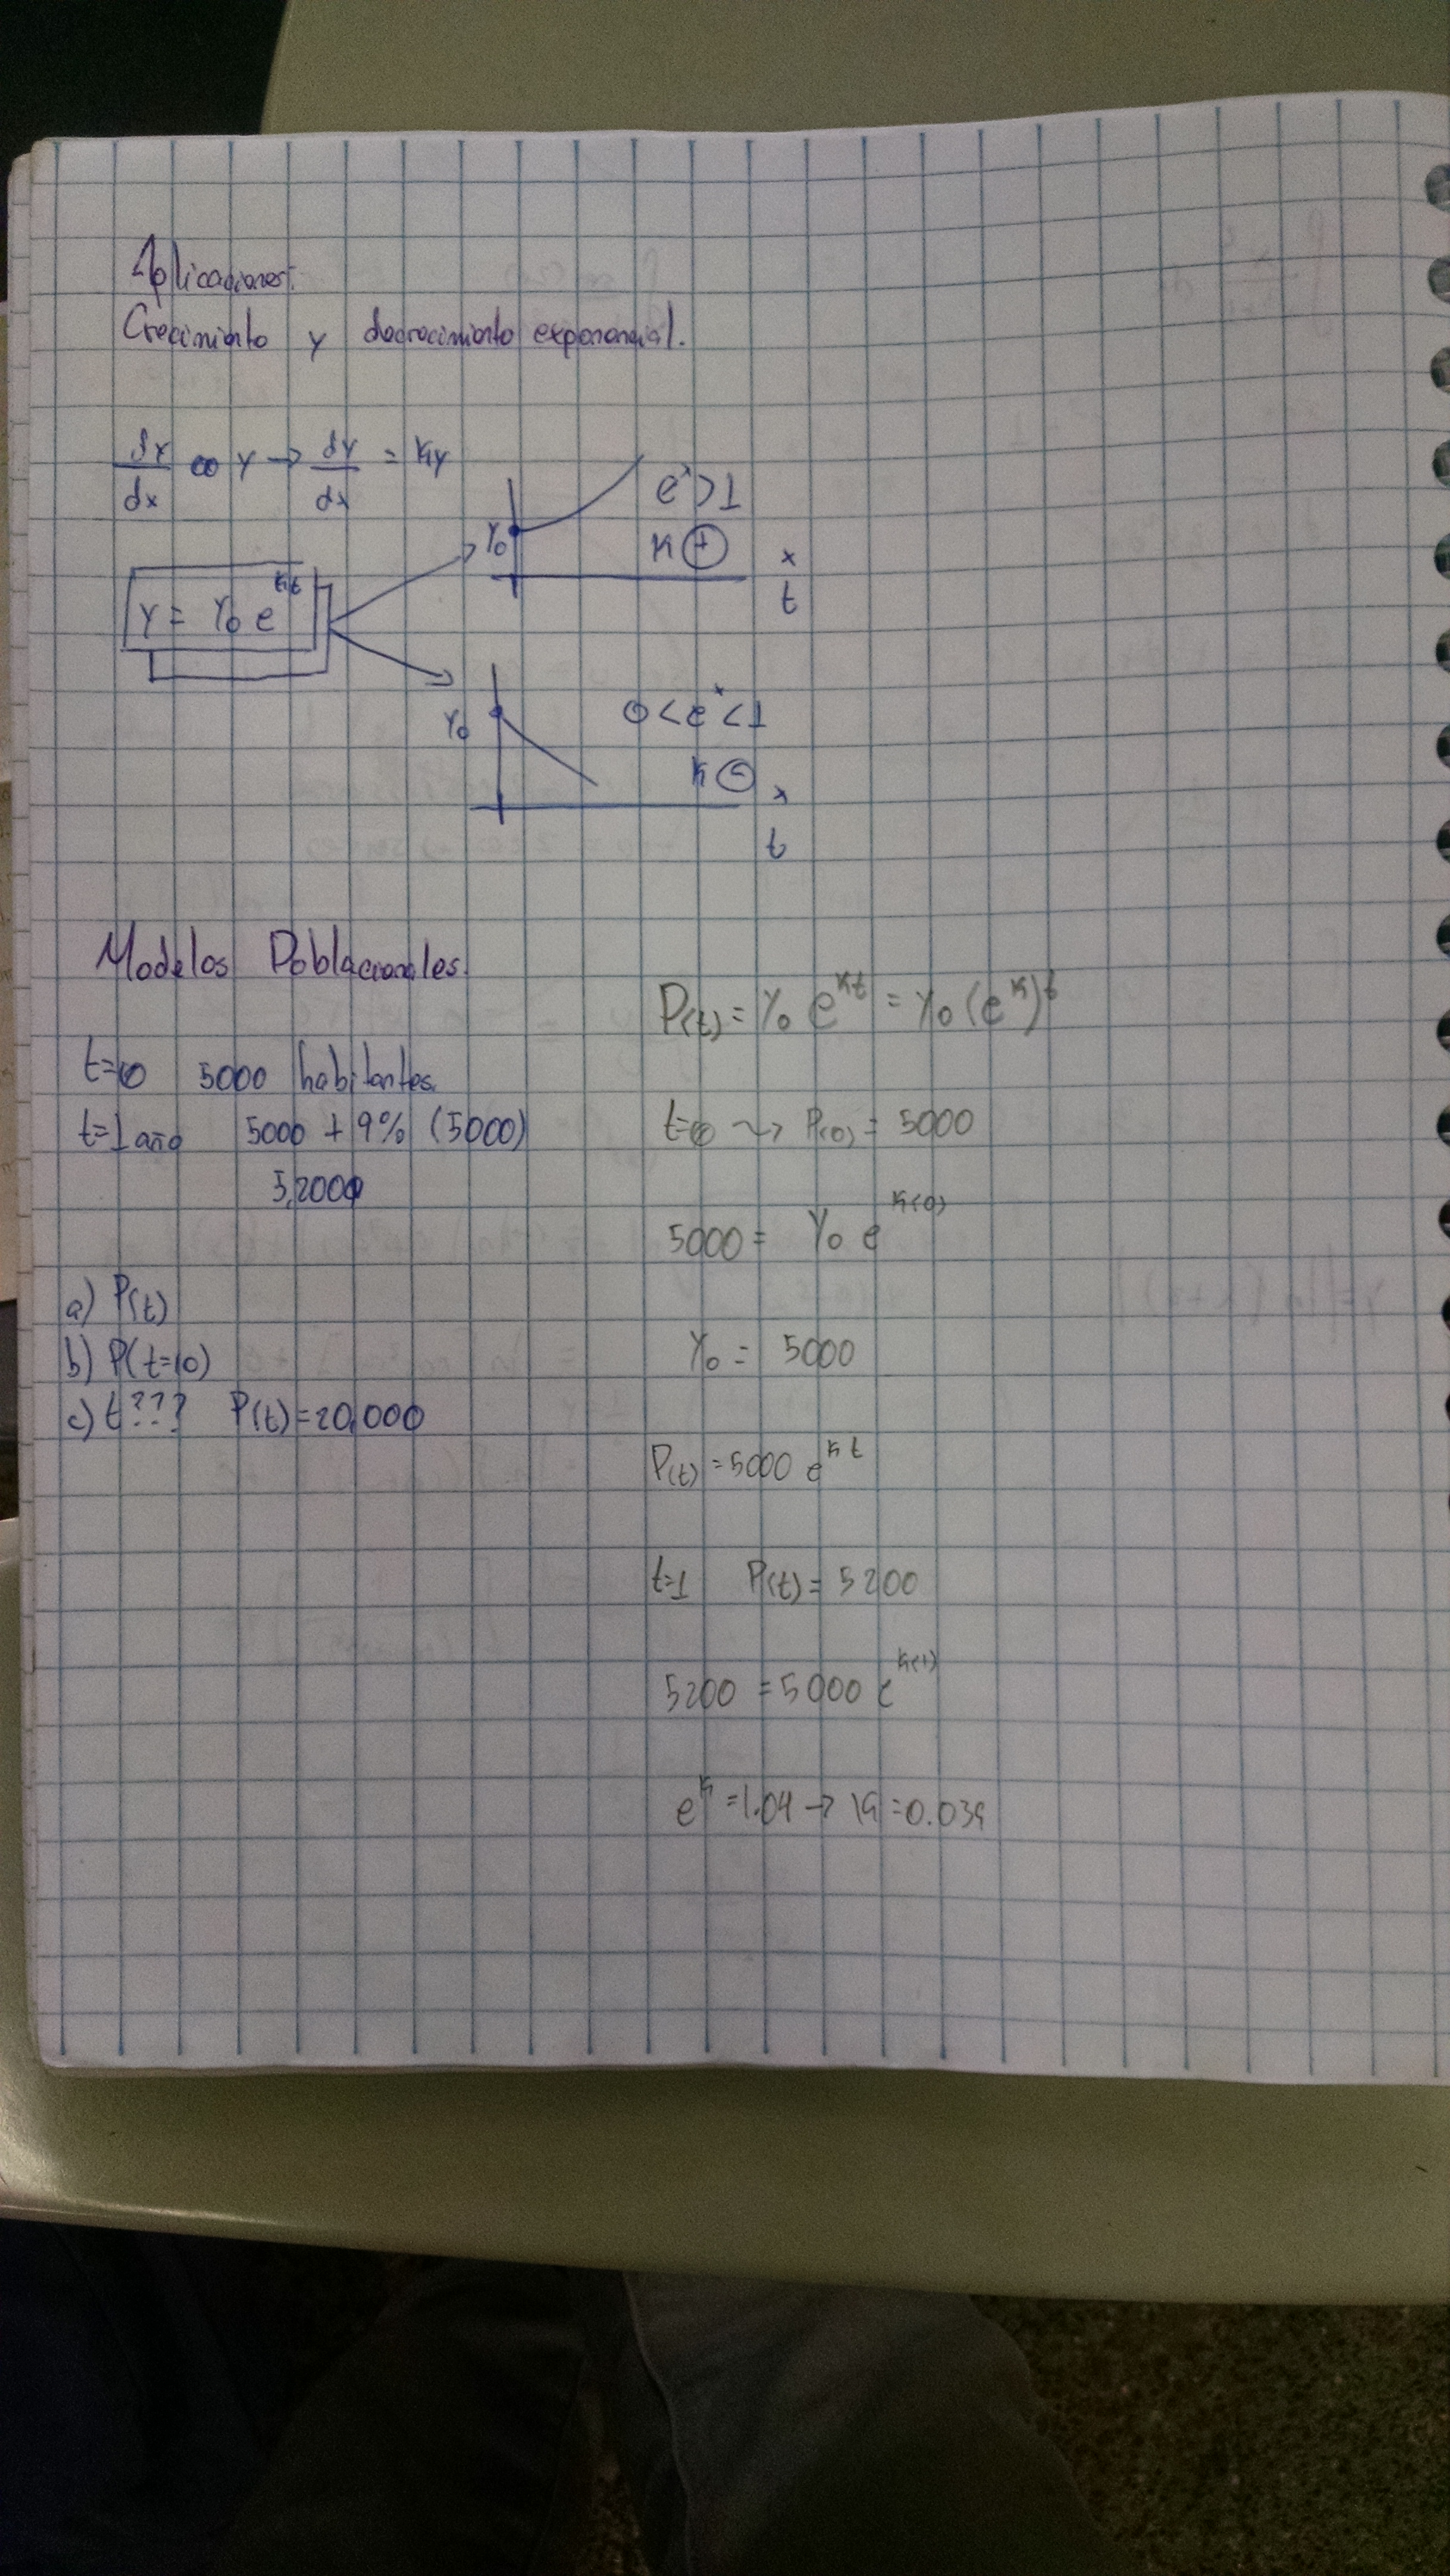 Aplicaciones:
Crecimiento y decrecimiento exponencial.
dy/dx ∝ y → dy/dx = Ky
Y₀ e^x > 1
K (+) x
t
Y = Y₀ e^(kt)
Y₀ 0 < e^x < 1
K (-) x
t
Modelos Poblacionales.
t=0 5000 habitantes.
t=1 año 5000 + 4% (5000)
5,200
a) P(t)
b) P(t=10)
c) t??? P(t)=20,000
P(t) = Y₀ e^(Kt) = Y₀ (e^K)^t
t=0 ⇝ P(0) = 5000
5000 = Y₀ e^(K(0))
Y₀ = 5000
P(t) = 5000 e^(Kt)
t=1 P(t) = 5200
5200 = 5000 e^(K(1))
e^K = 1.04 → K = 0.039